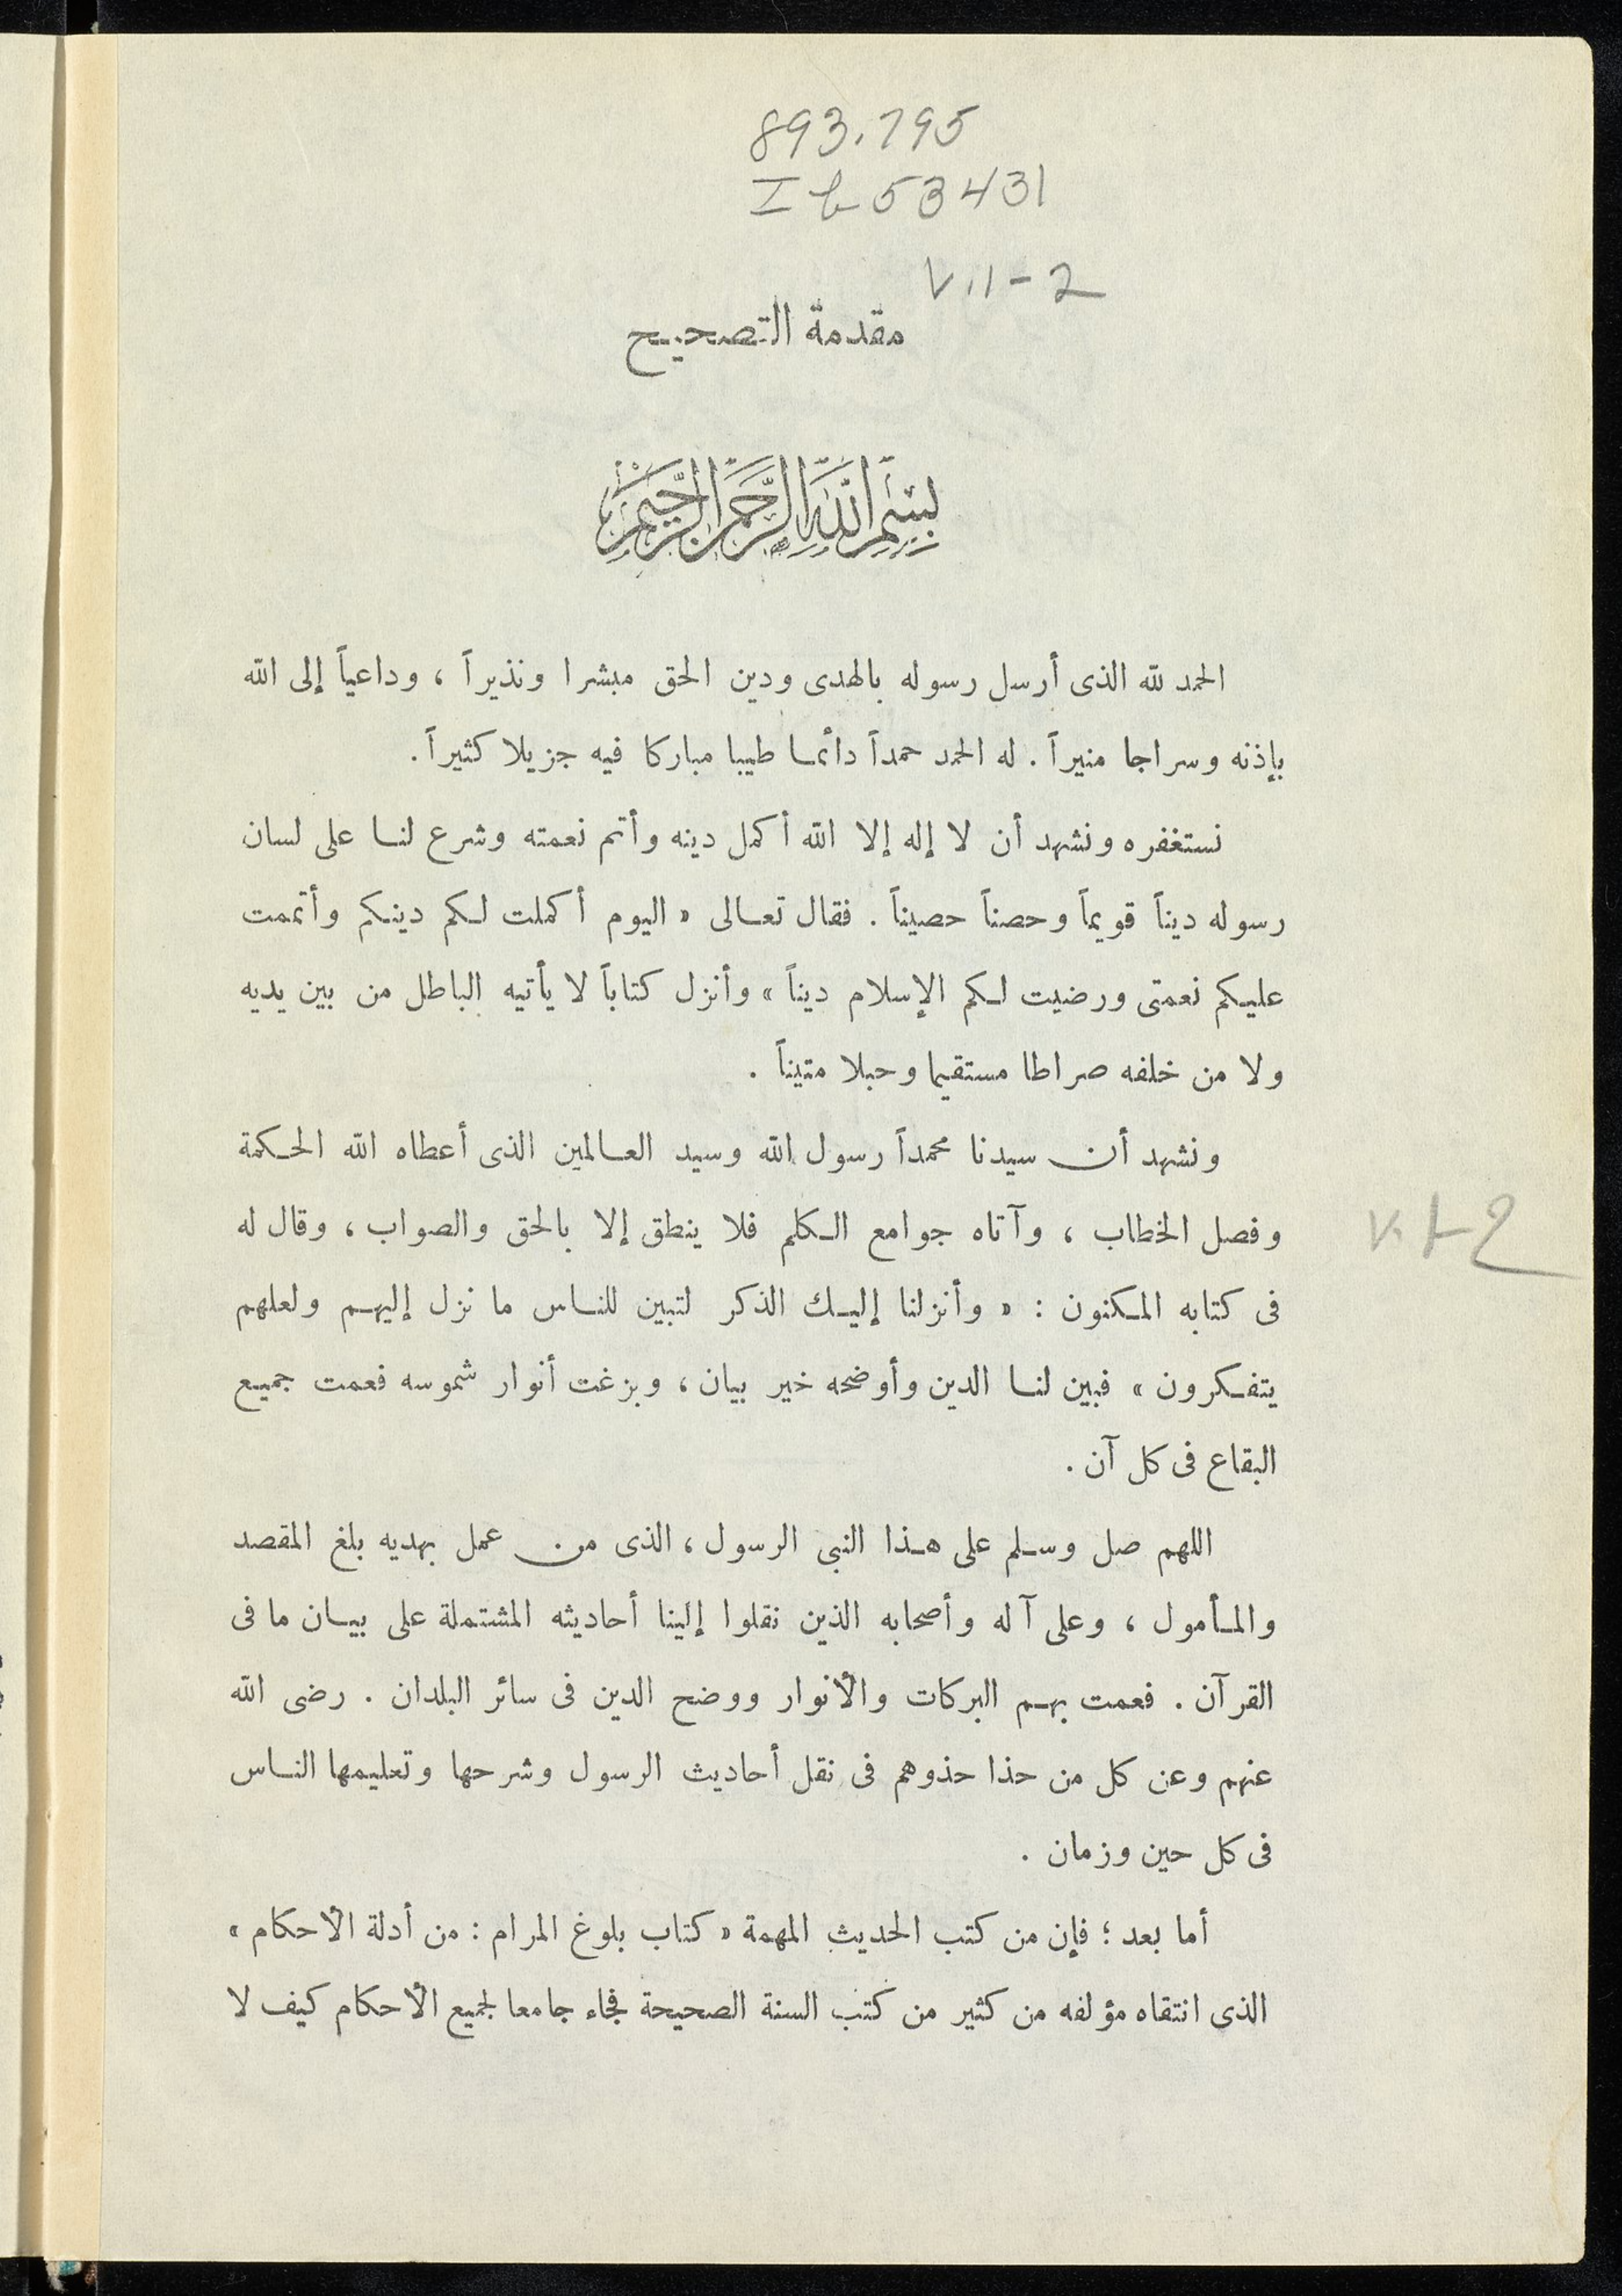 893.795
Ib53431
V.1-2
مقدمة التصحيح
بسم الله الرحمن الرحيم
الحمد لله الذى أرسل رسوله بالهدى ودين الحق مبشرا ونذيراً ، وداعياً إلى الله
بإذنه وسراجا منيراً . له الحمد حمداً دائما طيبا مباركا فيه جزيلا كثيراً .
نستغفره ونشهد أن لا إله إلا الله أكمل دينه وأتم نعمته وشرع لنا على لسان
رسوله ديناً قويماً وحصناً حصيناً . فقال تعالى « اليوم أكملت لكم دينكم وأتممت
عليكم نعمتى ورضيت لكم الإسلام ديناً » وأنزل كتاباً لا يأتيه الباطل من بين يديه
ولا من خلفه صراطا مستقيما وحبلا متيناً .
ونشهد أن سيدنا محمداً رسول الله وسيد العالمين الذى أعطاه الله الحكمة
وفصل الخطاب ، وآتاه جوامع الكلم فلا ينطق إلا بالحق والصواب ، وقال له
V. 1-2
فى كتابه المكنون : « وأنزلنا إليك الذكر لتبين للناس ما نزل إليهم ولعلهم
يتفكرون » فبين لنا الدين وأوضحه خير بيان ، وبزغت أنوار شموسه فعمت جميع
البقاع فى كل آن .
اللهم صل وسلم على هذا النبى الرسول ، الذى من عمل بهديه بلغ المقصد
والمأمول ، وعلى آله وأصحابه الذين نقلوا إلينا أحاديثه المشتملة على بيان ما فى
القرآن . فعمت بهم البركات والأنوار ووضح الدين فى سائر البلدان . رضى الله
عنهم وعن كل من حذا حذوهم فى نقل أحاديث الرسول وشرحها وتعليمها الناس
فى كل حين وزمان .
أما بعد ؛ فإن من كتب الحديث المهمة « كتاب بلوغ المرام : من أدلة الأحكام »
الذى انتقاه مؤلفه من كثير من كتب السنة الصحيحة فجاء جامعا لجميع الأحكام كيف لا